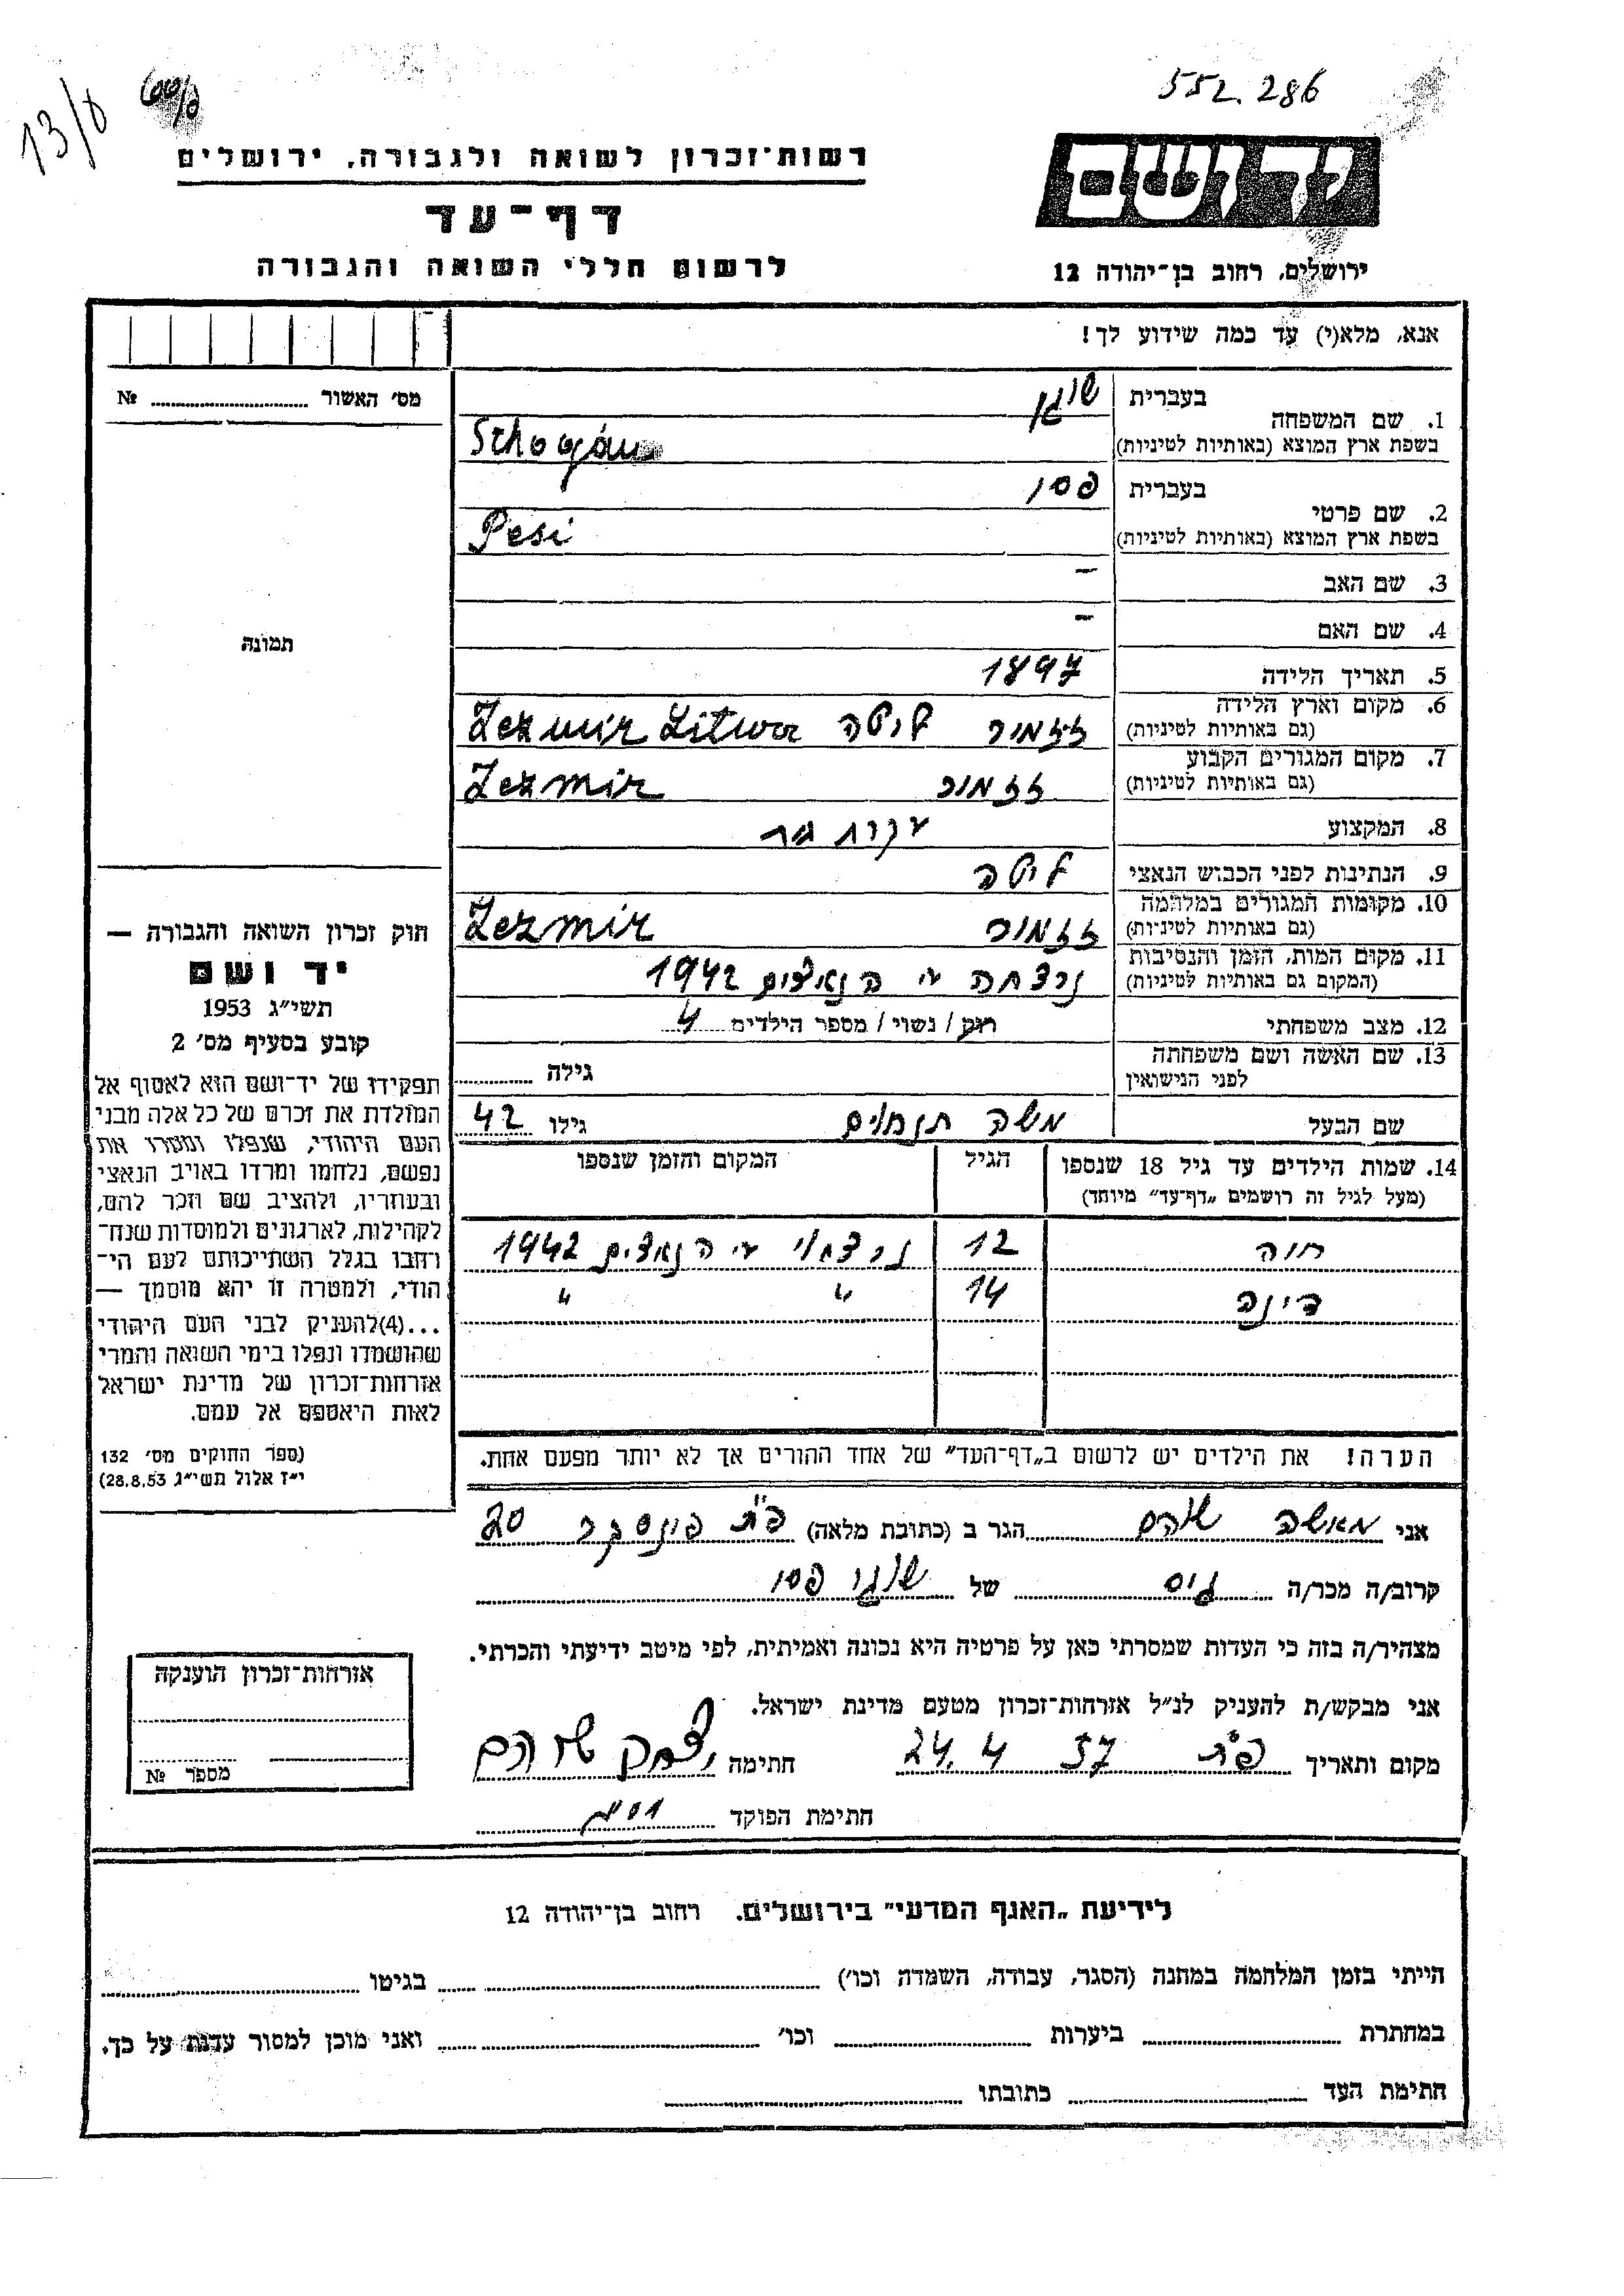 13/8
552.286
יד ושם
רשות־זכרון לשואה ולגבורה, ירושלים
דף־עד
לרשום חללי השואה והגבורה
ירושלים, רחוב בן־יהודה 12
אנא, מלא(י) עד כמה שידוע לך!
מס׳ האשור № 
1. שם המשפחה בעברית שוגן
בשפת ארץ המוצא (באותיות לטיניות) Schogán
2. שם פרטי בעברית פסי
בשפת ארץ המוצא (באותיות לטיניות) Pesi
3. שם האב –
4. שם האם –
5. תאריך הלידה 1897
6. מקום וארץ הלידה (גם באותיות לטיניות) זזמיר ליטה Zezmir Litwa
7. מקום המגורים הקבוע (גם באותיות לטיניות) זזמיר Zezmir
8. המקצוע עקרת בית
9. הנתינות לפני הכבוש הנאצי ליטה
10. מקומות המגורים במלחמה (גם באותיות לטיניות) זזמיר Zezmir
11. מקום המות, הזמן והנסיבות (המקום גם באותיות לטיניות) נרצחה ע״י הנאצים 1942
12. מצב משפחתי רוק / נשוי / מספר הילדים 4
13. שם האשה ושם משפחתה לפני הנישואין גילה
שם הבעל משה תנחום גילו 42
14. שמות הילדים עד גיל 18 שנספו הגיל המקום והזמן שנספו
(מעל לגיל זה רושמים „דף־עד״ מיוחד)
חוה 12 נרצחו ע״י הנאצים 1942
דינה 14 ״ ״
הערה! את הילדים יש לרשום ב„דף־העד״ של אחד ההורים אך לא יותר מפעם אחת.
תמונה
חוק זכרון השואה והגבורה —
יד ושם
תשי״ג 1953
קובע בסעיף מס׳ 2
תפקידו של יד־ושם הוא לאסוף אל
המולדת את זכרם של כל אלה מבני
העם היהודי, שנפלו ומסרו את
נפשם, נלחמו ומרדו באויב הנאצי
ובעוזריו, ולהציב שם וזכר להם,
לקהילות, לארגונים ולמוסדות שנח־
רבו בגלל השתייכותם לעם הי־
הודי, ולמטרה זו יהא מוסמך —
...(4)להעניק לבני העם היהודי
שהושמדו ונפלו בימי השואה והמרי
אזרחות־זכרון של מדינת ישראל
לאות היאספם אל עמם.
(ספר החוקים מס׳ 132
י״ז אלול תשי״ג 28.8.53)
אני מאשה שוהם הגר ב (כתובת מלאה) פ״ת פינסקר 20
קרוב/ה מכר/ה גיס של שוגן פסי
מצהיר/ה בזה כי העדות שמסרתי כאן על פרטיה היא נכונה ואמיתית, לפי מיטב ידיעתי והכרתי.
אני מבקש/ת להעניק לנ״ל אזרחות־זכרון מטעם מדינת ישראל.
מקום ותאריך פ״ת 24.4 57 חתימה יצחק שוהם
חתימת הפוקד
אזרחות־זכרון הוענקה
מספר №
לידיעת „האגף המדעי״ בירושלים. רחוב בן־יהודה 12
הייתי בזמן המלחמה במחנה (הסגר, עבודה, השמדה וכו׳) בגיטו
במחתרת ביערות וכו׳ ואני מוכן למסור עדות על כך.
חתימת העד כתובתו